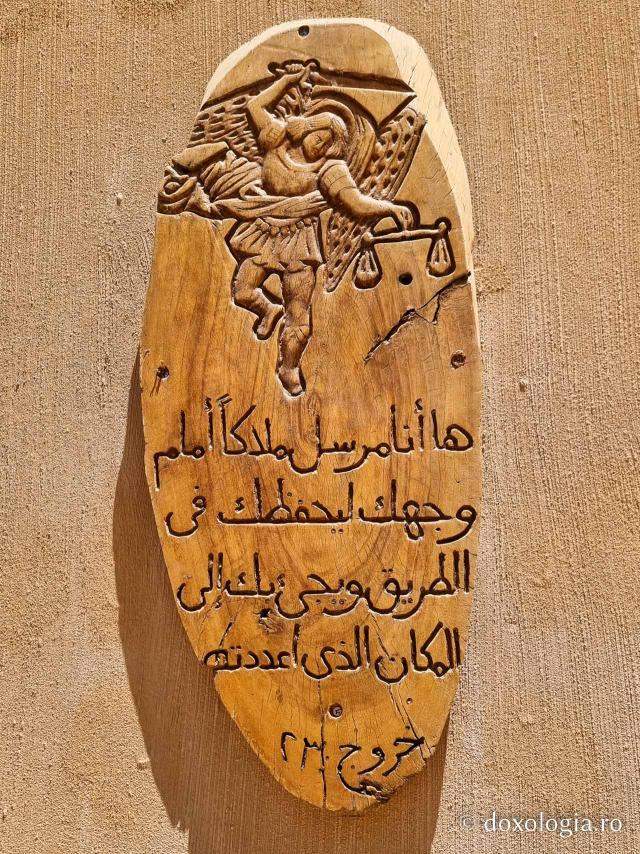 ها أنا مرسل ملاكاً أمام
وجهك ليحفظك فى
الطريق ويجئ بك إلى
المكان الذى أعددته
خروج ٢٣
© doxologia.ro